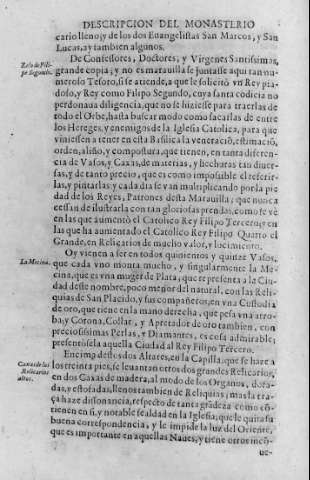 DESCRIPCION DEL MONASTERIO
cario lleno; y de los dos Euangelistas San Marcos, y San
Lucas, ay tambien algunos.
De Confessores, Doctores, y Virgenes Santissimas,
Zelo de Fili-
pe Segundo.
grande copia; y no es marauilla se juntasse aqui tan nu-
meroso Tesoro, si se atiende, a que le solicitò vn Rey pia-
doso, y Rey como Filipo Segundo, cuya santa codicia no
perdonaua diligencia, que no se hiziesse para traerlas de
todo el Orbe, hasta buscar modo como sacarlas de entre
los Hereges, y enemigos de la Iglesia Catolica, para que
viniessen a tener en esta Basilica la veneració, estimació,
orden, aliño, y compostura, que tienen, en tanta diferen-
cia de Vasos, y Caxas, de materias, y hechuras tan diuer-
sas, y de tanto precio, que es como impossible el referir-
las, y pintarlas; y cada dia se van multiplicando por la pie
dad de los Reyes, Patrones desta Marauilla; que nunca
cessan de ilustrarla con tan gloriosas prendas, como se vè
en las que aumentò el Catolico Rey Filipo Tercero; y en
las que ha aumentado el Catolico Rey Filipo Quarto el
Grande, en Relicarios de mucho valor, y lucimiento.
Oy vienen a ser en todos quinientos y quinze Vasos,
La Mecina.
que cada vno monta mucho, y singularmente la Me-
cina, que es vna muger de Plata, que representa a la Ciu-
dad deste nombre, poco menor del natural, con las Reli-
quias de San Placido, y sus compañeros, en vna Custodia
de oro, que tiene en la mano derecha, que pesa vna arro-
ba; y Corona, Collar, y Apretador de oro tambien, con
preciosissimas Perlas, y Diamantes, es cosa admirable;
presentòsela aquella Ciudad al Rey Filipo Tercero.
Encima destos dos Altares, en la Capilla, que se haze a
Caxas de los
Relicarios
altos.
los treinta pies, se leuantan otros dos grandes Relicarios,
en dos Caxas de madera, al modo de los Organos, dora-
das, y estofadas, llenos tambien de Reliquias; mas la tra-
ça haze dissonancia, respecto de tanta grãdeza como cõ-
tienen en si, y notable fealdad en la Iglesia; que le quita su
buena correspondencia, y le impide la luz del Oriente,
que es importante en aquellas Naues; y tiene otros incõ-
ue-